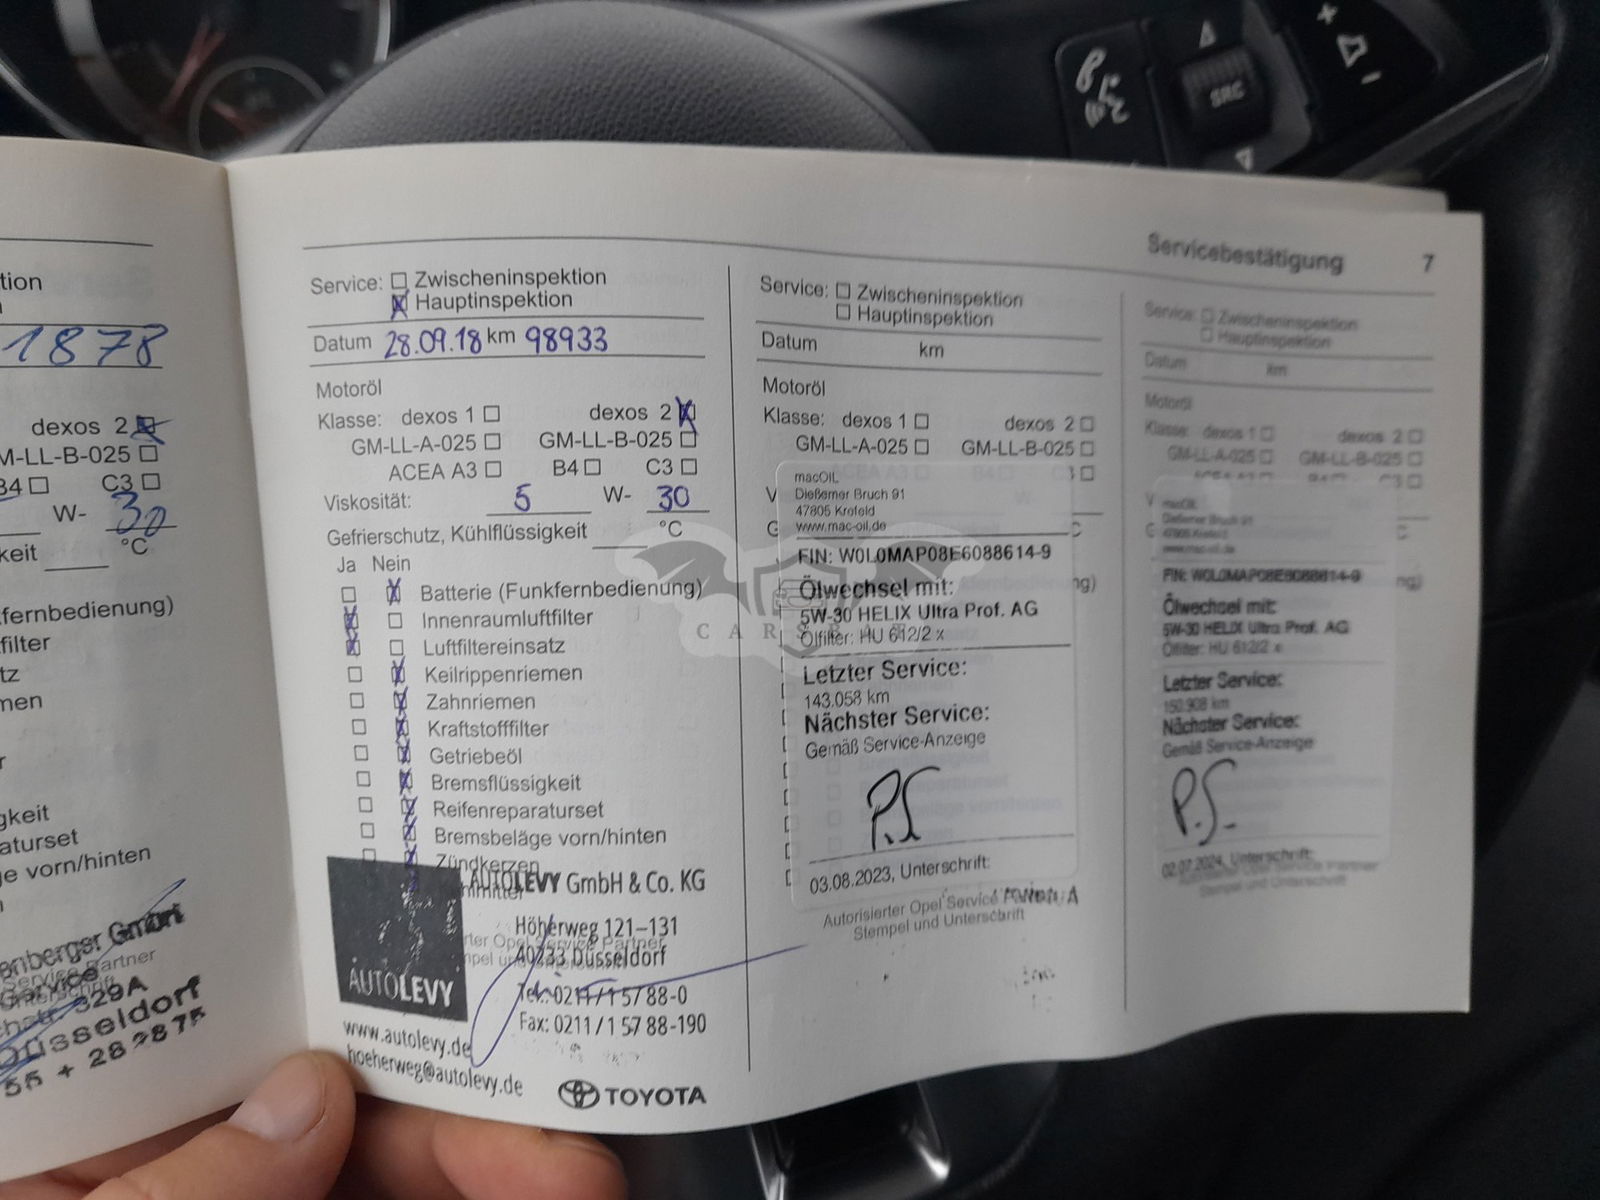 Servicebestätigung 7
1878
dexos 2
M-LL-B-025
B4 C3
W- 30
keit °C
fernbedienung)
filter
tz
men
r
gkeit
aturset
ge vorn/hinten
Düsseldorf
Service: Zwischeninspektion
Hauptinspektion
Datum 28.09.18 km 98933
Motoröl
Klasse: dexos 1 dexos 2
GM-LL-A-025 GM-LL-B-025
ACEA A3 B4 C3
Viskosität: 5 W- 30
Gefrierschutz, Kühlflüssigkeit °C
Ja Nein
Batterie (Funkfernbedienung)
Innenraumluftfilter
Luftfiltereinsatz
Keilrippenriemen
Zahnriemen
Kraftstofffilter
Getriebeöl
Bremsflüssigkeit
Reifenreparaturset
Bremsbeläge vorn/hinten
Zündkerzen
AUTOLEVY GmbH & Co. KG
Höherweg 121–131
40233 Düsseldorf
AUTOLEVY
Tel.: 0211/1 57 88-0
Fax: 0211/1 57 88-190
www.autolevy.de
hoeherweg@autolevy.de
TOYOTA
Service: Zwischeninspektion
Hauptinspektion
Datum km
Motoröl
Klasse: dexos 1 dexos 2
GM-LL-A-025 GM-LL-B-025
macOIL
Dießemer Bruch 91
47805 Krefeld
www.mac-oil.de
FIN: W0L0MAP08E6088614-9
Ölwechsel mit:
5W-30 HELIX Ultra Prof. AG
Ölfilter: HU 612/2 x
Letzter Service:
143.058 km
Nächster Service:
Gemäß Service-Anzeige
P.S
03.08.2023, Unterschrift:
Autorisierter Opel Service
Stempel und Unterschrift
Service: Zwischeninspektion
Hauptinspektion
Datum km
Motoröl
Klasse: dexos 1 dexos 2
GM-LL-A-025 GM-LL-B-025
macOIL
Dießemer Bruch 91
47805 Krefeld
www.mac-oil.de
FIN: W0L0MAP08E6088614-9
Ölwechsel mit:
5W-30 HELIX Ultra Prof. AG
Ölfilter: HU 612/2 x
Letzter Service:
150.908 km
Nächster Service:
Gemäß Service-Anzeige
P.S.
02.07.2024, Unterschrift:
Stempel und Unterschrift
SRC